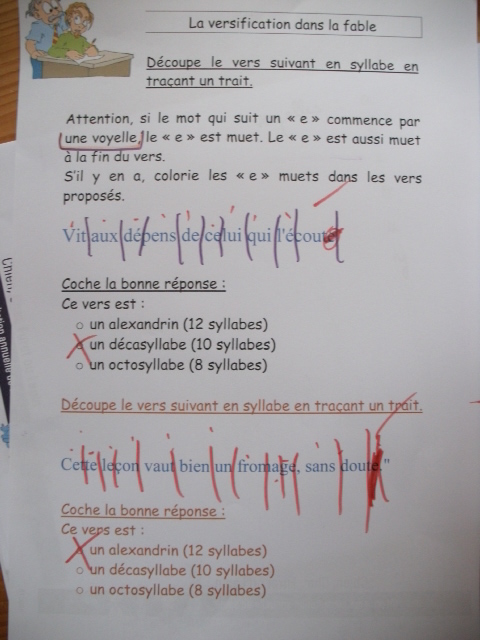 La versification dans la fable
Découpe le vers suivant en syllabe en
traçant un trait.
Attention, si le mot qui suit un « e » commence par
une voyelle, le « e » est muet. Le « e » est aussi muet
à la fin du vers.
S'il y en a, colorie les « e » muets dans les vers
proposés.
Vit aux dépens de celui qui l'écoute
Coche la bonne réponse :
Ce vers est :
un alexandrin (12 syllabes)
un décasyllabe (10 syllabes)
un octosyllabe (8 syllabes)
Découpe le vers suivant en syllabe en traçant un trait.
Cette leçon vaut bien un fromage, sans doute."
Coche la bonne réponse :
Ce vers est :
un alexandrin (12 syllabes)
un décasyllabe (10 syllabes)
un octosyllabe (8 syllabes)